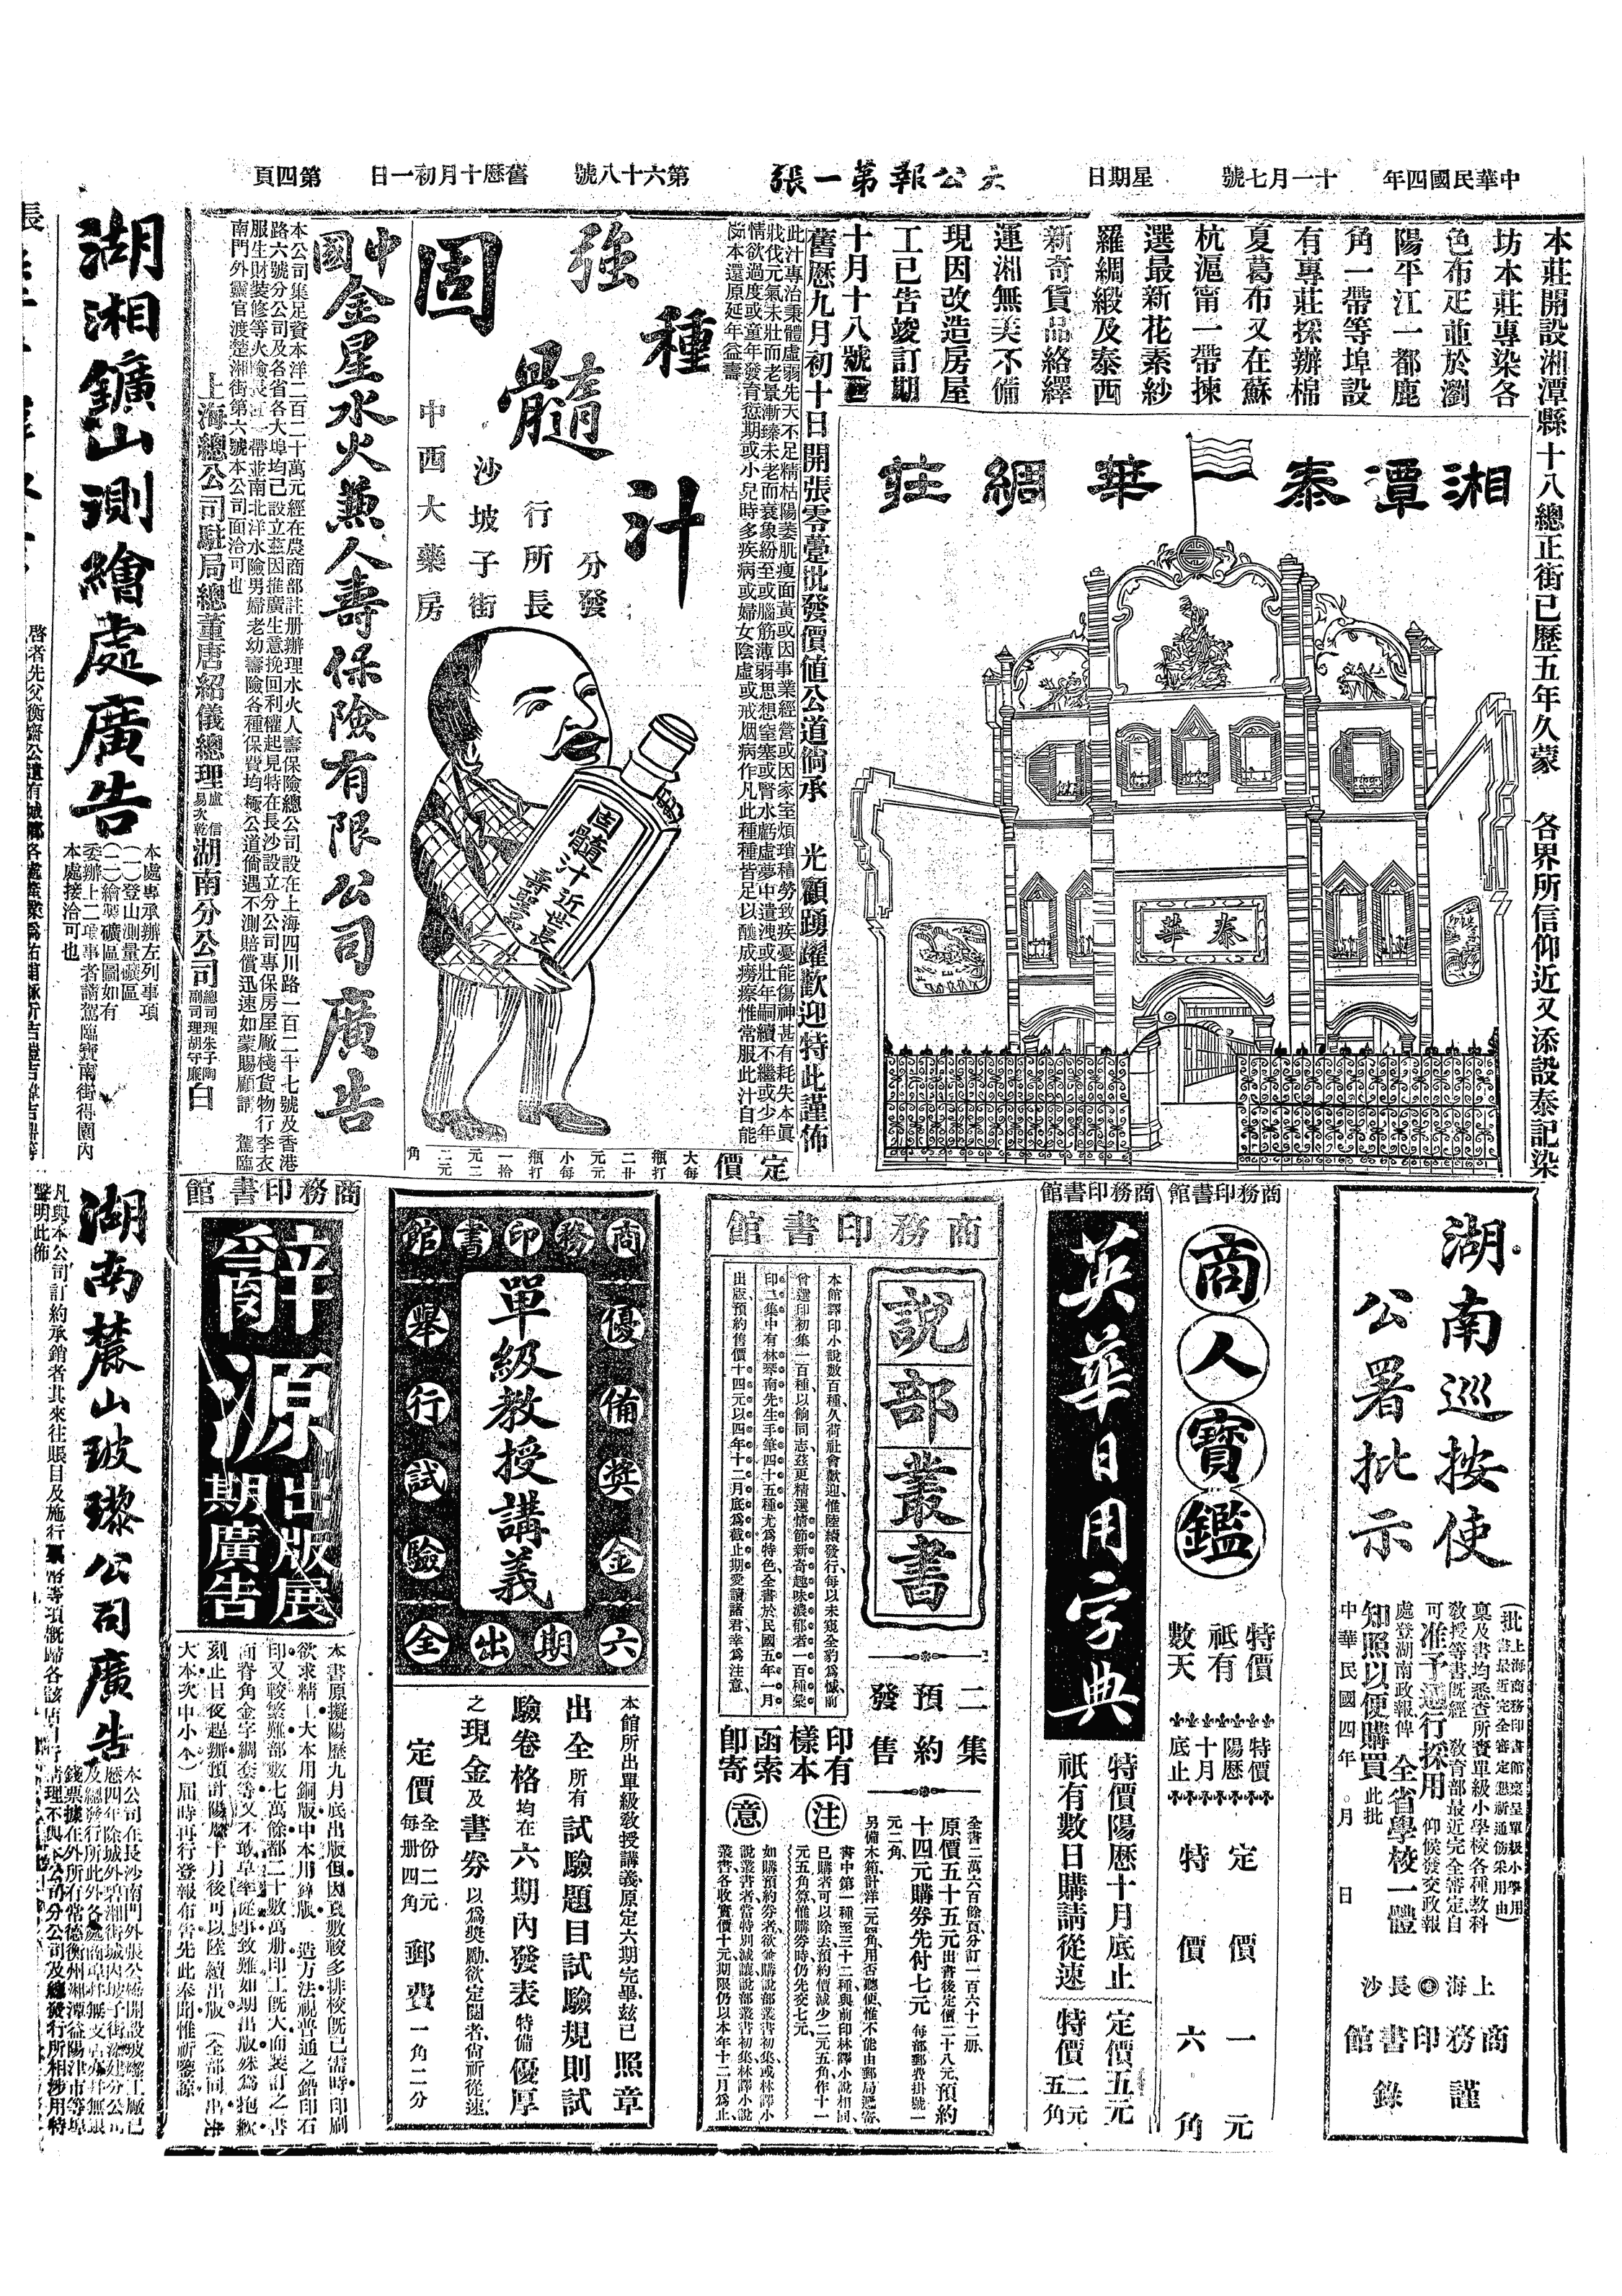 中華民國四年 十一月七號 星期日 大公報第一張 第六十八號 舊歷十月初一日 第四頁
本莊開設湘潭縣十八總正街已歷五年久蒙 各界所信仰近又添設泰記染
坊本莊專染各
色布疋並於瀏
陽平江一都鹿
角一帶等埠設
有專莊採辦棉
夏葛布又在蘇
杭滬甯一帶揀
選最新花素紗
羅綢緞及泰西
新奇貨品絡繹
運湘無美不備
現因改造房屋
工已告竣訂期
十月十八號
舊歷九月初十日開張零躉批發價值公道倘承 光顧踴躍歡迎特此謹佈
湘潭泰華綢莊
泰華
強種
固髓汁
分發
行所長
沙坡子街
中西大藥房
此汁專治秉體虛弱先天不足精枯陽委肌瘦面黃或因事業經營或因家室煩瑣積勞致疾憂能傷神甚有耗失本眞
戕伐元氣未壯而老景漸臻未老而衰象紛至或腦筋薄弱思想窒塞或腎水虧虛夢中遺洩或壯年嗣續不繼或少年
情欲過度或童年發育愆期或小兒時多疾病或婦女陰虛或戒烟病作凡此種種皆足以釀成癆瘵惟常服此汁自能
本還原延年益壽
固髓汁近世長
壽聖品
定價
大每
瓶打
廿
二元
小每
瓶打
一拾
元二
二元
角
中國金星水火兼人壽保險有限公司廣告
本公司集足資本洋二百二十萬元經在農商部註册辦理水火人壽保險總公司設在上海四川路一百二十七號及香港
路六號分公司及各省各大埠均已設立茲因推廣生意挽回利權起見特在長沙設立分公司專保房屋廠棧貨物行李衣
服生財裝修等火險長江一帶並南北洋水險男婦老幼壽險各種保費均極公道倘遇不測賠償迅速如蒙賜顧請 駕臨
南門外靈官渡楚湘街第六號本公司面洽可也
上海總公司駐局總董唐紹儀總理盧信 易次乾湖南分公司總司理朱子陶 副司理胡守廉白
湖湘鑛山測繪處廣告
本處專承辦左列事項
(一)登山測量礦區
(二)繪製礦區圖如有
委辦上二項事者請駕臨寶南街得園內
本處接洽可也
湖南巡按使
公署批示
(批上海商務印書館稟呈單級小學用
書最近完全審定懇新通飭采用由)
稟及書均悉查所賫單級小學校各種教科
教授等書旣經 教育部最近完全審定自
可准予遜行採用 仰候發交政報
處登湖南政報俾 全省學校一體
知照以便購買此批
中華民國四年 月 日
上海 長沙
商務印書館
謹錄
商務印書館
商人寶鑑
特價
祇有
數天
特價
陽歷
十月
底止
定價一元
特價六角
商務印書館
英華日用字典
特價陽歷十月底止
祇有數日購請從速
定價五元
特價二元五角
商務印書館
說部叢書
二集
預約
發售
本館譯印小說數百種久荷社會歡迎惟陸續發行每以未窺全豹爲憾前
曾選印初集一百種以餉同志茲更精選情節新奇趣味濃郁者一百種彙
印二集中有林琴南先生手筆四十五種尤爲特色全書於民國五年一月
出版預約售價十四元以四年十二月底爲截止期愛讀諸君幸爲注意
印有
樣本
函索
即寄
全書二萬六百餘頁分訂一百六十二册
原價五十五元出書後定價二十八元預約
十四元購券先付七元每部郵費掛號一
元二角
另備木箱計洋二元四角用否聽便惟不能由郵局遞寄
注意
書中第一種至三十二種與前印林譯小說相同
已購者可以除去預約價減少二元五角作十一
元五角算惟購券時仍先交七元
如購預約券者欲並購說部叢書初集或林譯小
說叢書者當特別減讓說部叢書初集林譯小說
叢書各收實價十元期限仍以本年十二月爲止
商務印書館
舉行試驗
優備獎金
單級教授講義
六期出全
本館所出單級敎授講義原定六期完畢茲已照章
出全所有試驗題目試驗規則試
驗卷格均在六期內發表特備優厚
之現金及書券以爲獎勵欲定閱者尚祈從速
定價全份二元 每册四角 郵費一角二分
商務印書館
辭源
出版展
期廣告
本書原擬陽歷九月底出版但因頁數較多排校旣已需時印刷
欲求精(大本用銅版中本用鋅版)造方法視普通之鉛印石
印又較繁難部數七萬餘部二十數萬册印工旣大而裝訂之書
面脊角金字綢套等又不敢草率從事致難如期出版殊爲抱歉
刻止日夜趕辦預計陽歷十月後可以陸續出版(全部同出先
大本次中小本)屆時再行登報布告先此奉聞惟祈鑒諒
湖南麓山玻璨公司廣告
本公司在長沙南門外張公
凡與本公司訂約承銷者其來往賬目及施行
聲明此佈